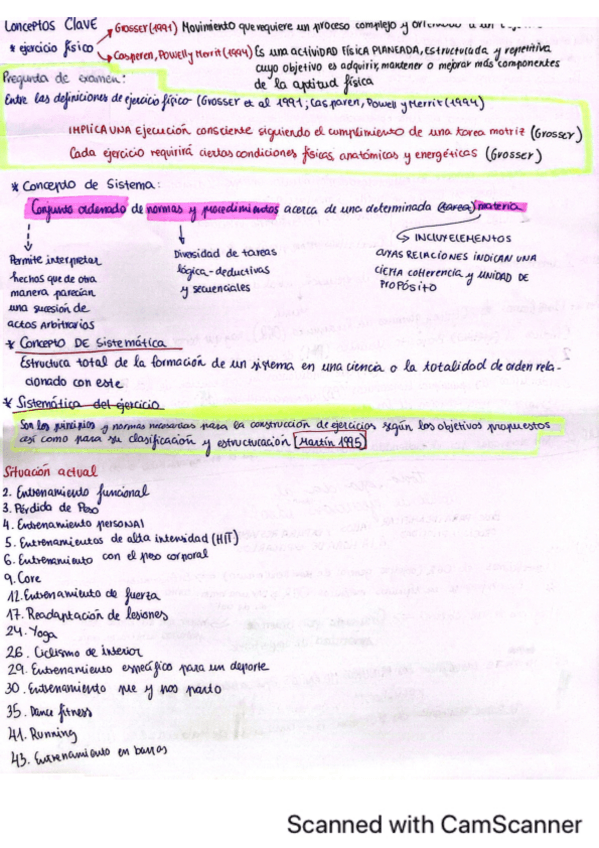 Conceptos Clave
* ejercicio físico
Grosser (1991) Movimiento que requiere un proceso complejo y orientado a un
Casperen, Powell y Merrit (1994) Es una actividad física PLANEADA, estructurada y repetitiva
cuyo objetivo es adquirir, mantener o mejorar más componentes
de la aptitud física
Pregunta de examen:
Entre las definiciones de ejercicio físico (Grosser et al 1991; Casparen, Powell y Merrit (1994)
IMPLICA UNA Ejecución consciente siguiendo el cumplimiento de una tarea motriz (Grosser)
Cada ejercicio requirirá ciertas condiciones físicas, anatómicas y energéticas (Grosser)
* Concepto de Sistema:
Conjunto ordenado de normas y procedimientos acerca de una determinada (tarea) materia
Permite interpretar
hechos que de otra
manera parecían
una sucesión de
actos arbitrarios
Diversidad de tareas
lógica-deductivas
y secuenciales
INCLUYE ELEMENTOS
CUYAS RELACIONES INDICAN UNA
CIERTA COHERENCIA y UNIDAD DE
PROPÓSITO
* Concepto DE Sistemática
Estructura total de la formación de un sistema en una ciencia o la totalidad de orden rela-
cionado con este
* Sistemática del ejercicio
Son los principios y normas necesarias para la construcción de ejercicios según los objetivos propuestos
así como para su clasificación y estructuración [Martín 1995]
Situación actual
2. Entrenamiento funcional
3. Pérdida de Peso
4. Entrenamiento personal
5. Entrenamientos de alta intensidad (HIT)
6. Entrenamiento con el peso corporal
9. Core
12. Entrenamiento de fuerza
17. Readaptación de lesiones
24. Yoga
26. Ciclismo de interior
29. Entrenamiento específico para un deporte
30. Entrenamiento pre y pos parto
35. Dance fitness
41. Running
43. Entrenamiento en barras
Scanned with CamScanner